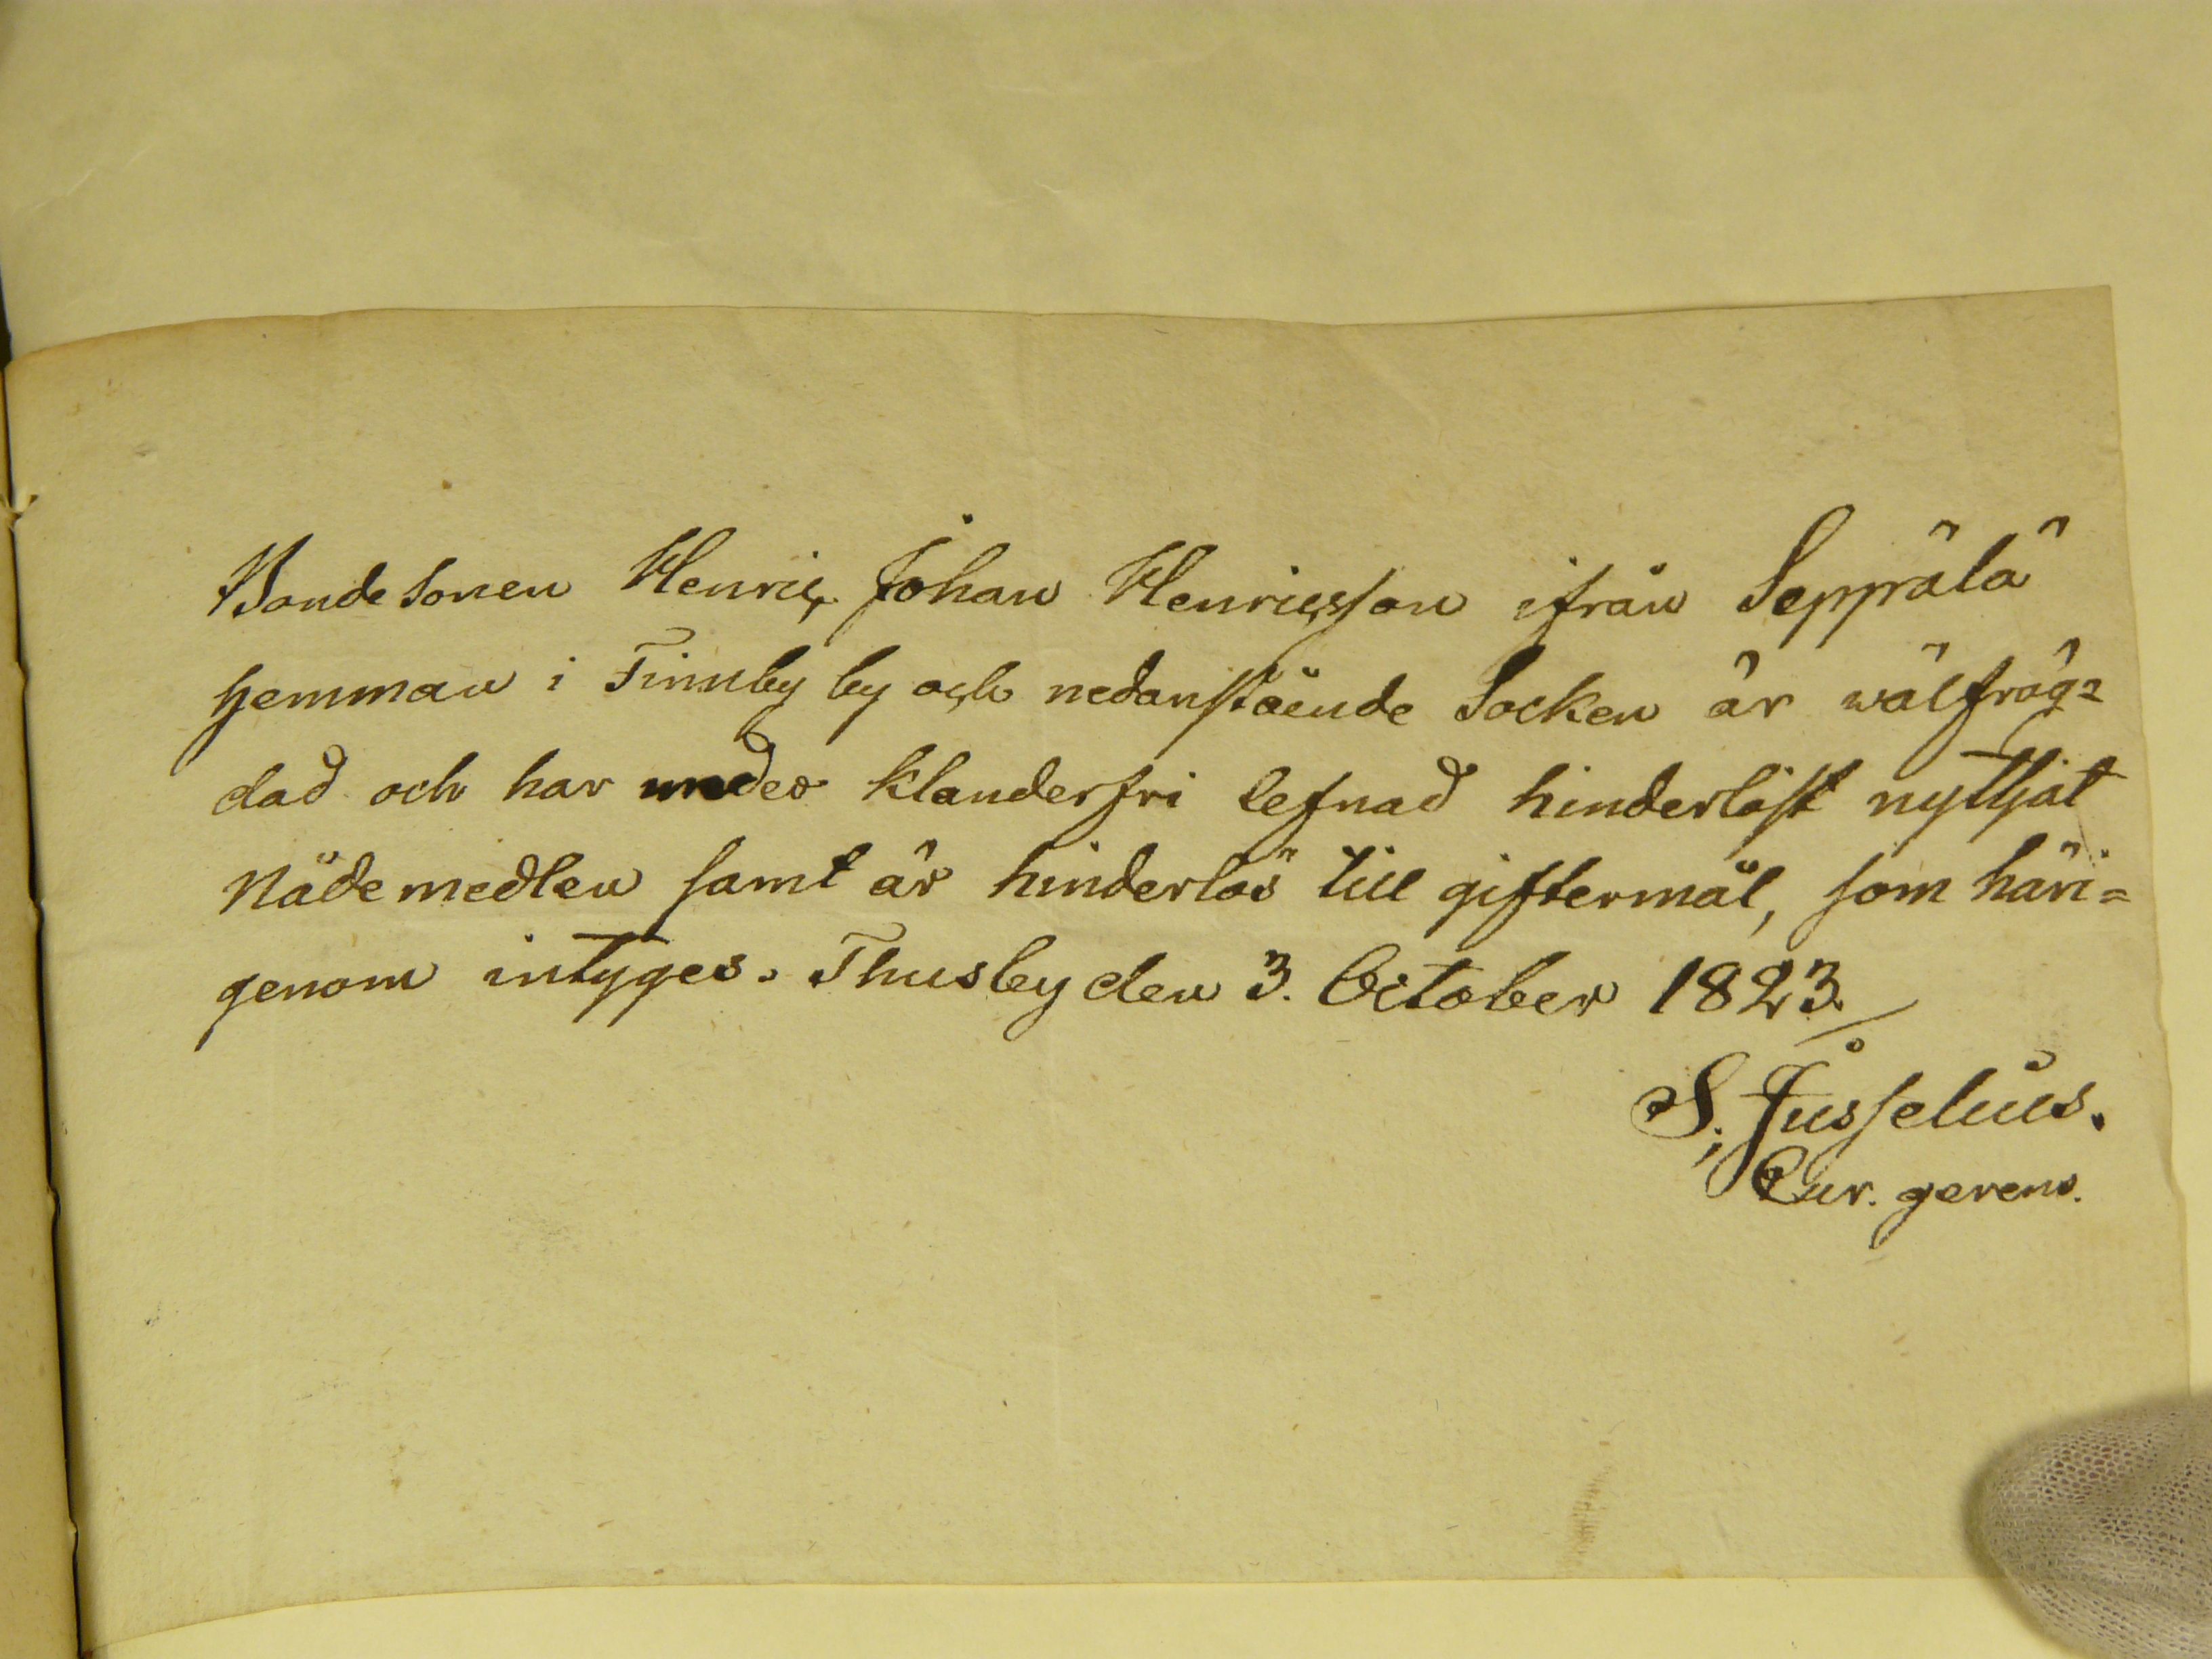 Bonde Sonen Henric Johan Henricsson ifrån Seppälä
Hemman i Finnby by och nedanstående Socken är wälfräg=
dad och har under klanderfri lefnad hinderlöst nyttjat
Nådemedlen samt är hinderlös till giftermål, som häri=
genom intyges. Thusby den 3. October 1823.
S. Jusselius.
Cur. gerens.